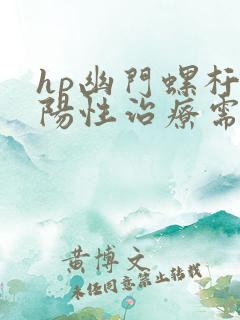 hp幽門螺杆
陽性治療需
黄博文
未任同意禁止轉載